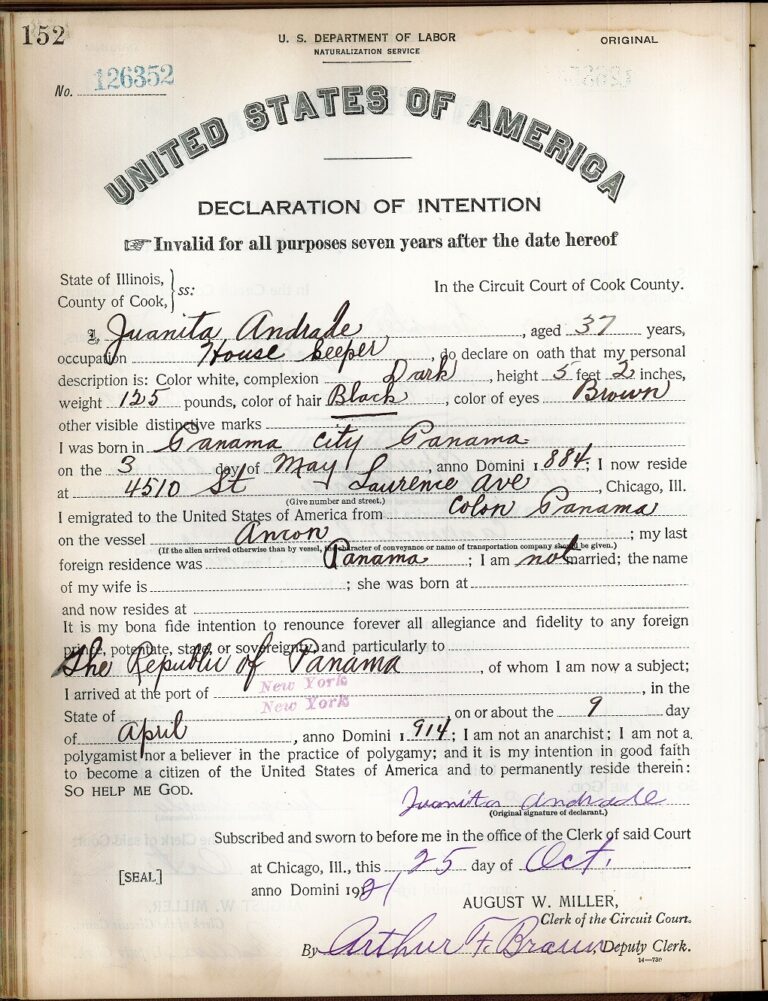 152
U. S. DEPARTMENT OF LABOR
NATURALIZATION SERVICE
ORIGINAL
No. 126352
UNITED STATES OF AMERICA
DECLARATION OF INTENTION
☞ Invalid for all purposes seven years after the date hereof
State of Illinois,
County of Cook, } ss:
In the Circuit Court of Cook County.
I, Juanita Andrade, aged 37 years,
occupation House keeper, do declare on oath that my personal
description is: Color white, complexion Dark, height 5 feet 2 inches,
weight 125 pounds, color of hair Black, color of eyes Brown
other visible distinctive marks
I was born in Panama City Panama
on the 3 day of May, anno Domini 1884; I now reside
at 4510 St Laurence Ave, Chicago, Ill.
(Give number and street.)
I emigrated to the United States of America from Colon Panama
on the vessel Ancon; my last
(If the alien arrived otherwise than by vessel, the character of conveyance or name of transportation company should be given.)
foreign residence was Panama; I am not married; the name
of my wife is ; she was born at
and now resides at
It is my bona fide intention to renounce forever all allegiance and fidelity to any foreign
prince, potentate, state, or sovereignty, and particularly to
The Republic of Panama, of whom I am now a subject;
I arrived at the port of New York, in the
State of New York, on or about the 9 day
of April, anno Domini 1914; I am not an anarchist; I am not a
polygamist nor a believer in the practice of polygamy; and it is my intention in good faith
to become a citizen of the United States of America and to permanently reside therein:
SO HELP ME GOD.
Juanita Andrade
(Original signature of declarant.)
Subscribed and sworn to before me in the office of the Clerk of said Court
[SEAL]
at Chicago, Ill., this 25 day of Oct.
anno Domini 1921
AUGUST W. MILLER,
Clerk of the Circuit Court.
By Arthur F. Braun, Deputy Clerk.
14—730